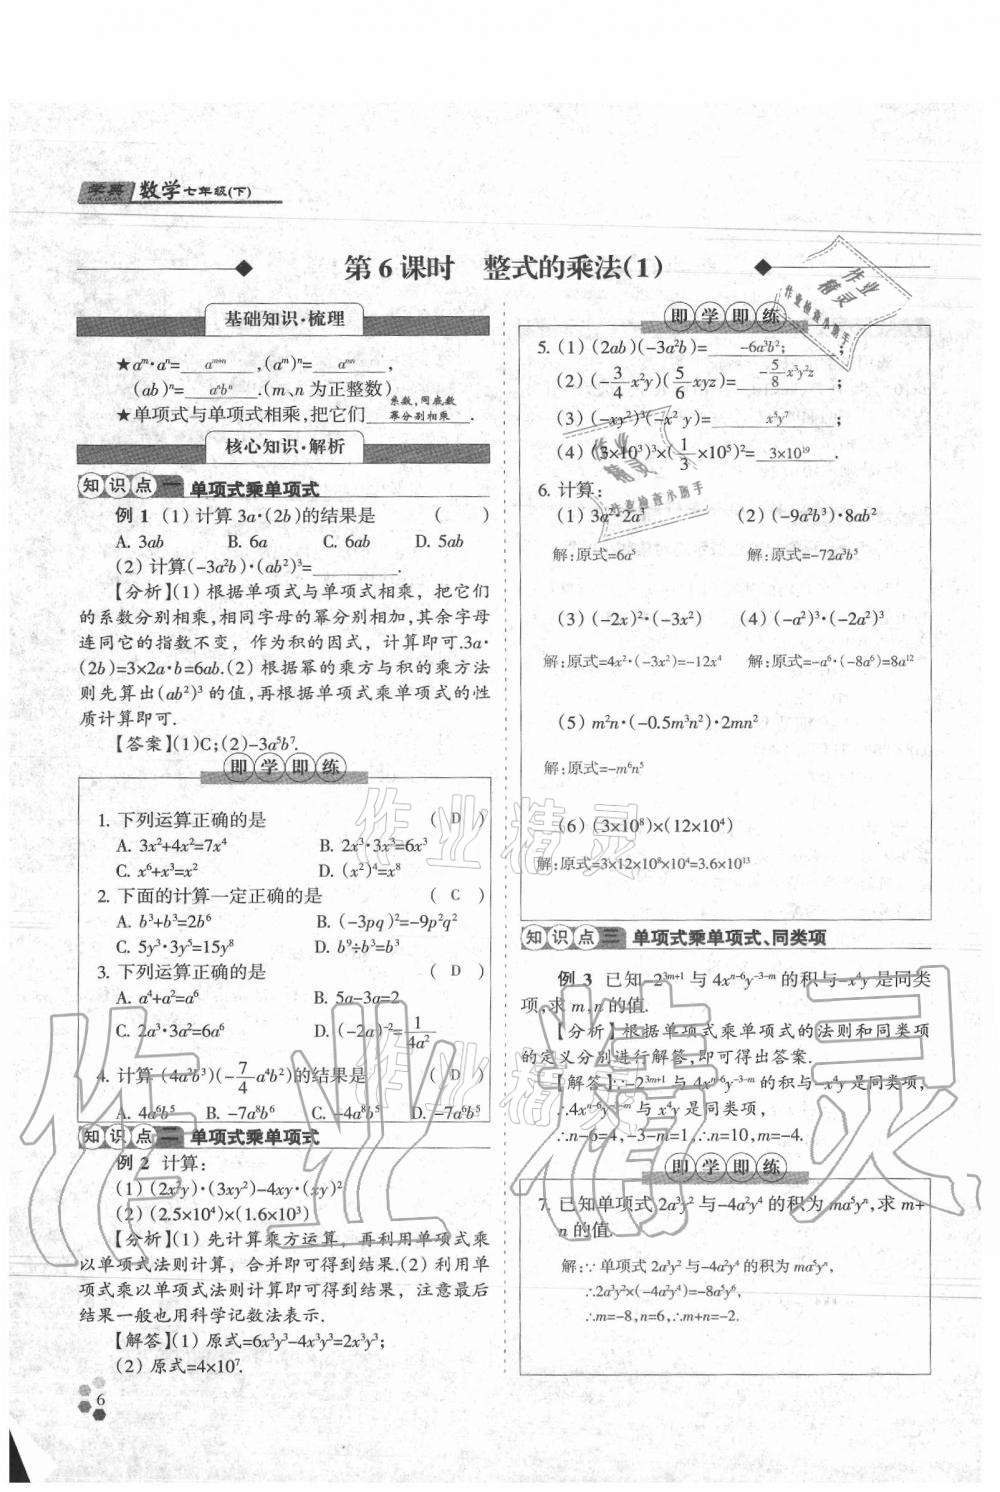 学典 数学七年级(下)
第6课时 整式的乘法(1)
基础知识·梳理
★aᵐ·aⁿ= aᵐ⁺ⁿ ,(aᵐ)ⁿ= aᵐⁿ ,
(ab)ⁿ= aⁿbⁿ .(m、n为正整数)
★单项式与单项式相乘,把它们 系数,同底数幂分别相乘 .
核心知识·解析
知识点一 单项式乘单项式
例1 (1) 计算3a·(2b)的结果是 ( )
A. 3ab B. 6a C. 6ab D. 5ab
(2) 计算(-3a²b)·(ab²)³= .
【分析】(1) 根据单项式与单项式相乘,把它们
的系数分别相乘,相同字母的幂分别相加,其余字母
连同它的指数不变,作为积的因式,计算即可.3a·
(2b)=3×2a·b=6ab.(2) 根据幂的乘方与积的乘方法
则先算出(ab²)³的值,再根据单项式乘单项式的性
质计算即可.
【答案】(1)C;(2)-3a⁵b⁷.
即学即练
1. 下列运算正确的是 ( D )
A. 3x²+4x²=7x⁴ B. 2x³·3x³=6x³
C. x⁶+x³=x² D. (x²)⁴=x⁸
2. 下面的计算一定正确的是 ( C )
A. b³+b³=2b⁶ B. (-3pq)²=-9p²q²
C. 5y³·3y⁵=15y⁸ D. b⁹÷b³=b³
3. 下列运算正确的是 ( D )
A. a⁴+a²=a⁶ B. 5a-3a=2
C. 2a³·3a²=6a⁶ D. (-2a)⁻²=1/4a²
4. 计算(4a²b³)(-7/4a⁴b²)的结果是 ( D )
A. 4a⁶b⁵ B. -7a⁸b⁶ C. -4a⁸b⁵ D. -7a⁶b⁵
知识点二 单项式乘单项式
例2 计算:
(1) (2x²y)·(3xy²)-4xy·(xy)²
(2) (2.5×10⁴)×(1.6×10³)
【分析】(1) 先计算乘方运算,再利用单项式乘
以单项式法则计算,合并即可得到结果.(2) 利用单
项式乘以单项式法则计算即可得到结果,注意最后
结果一般也用科学记数法表示.
【解答】(1) 原式=6x³y³-4x³y³=2x³y³;
(2) 原式=4×10⁷.
6
即学即练
5. (1) (2ab)(-3a²b)= -6a³b²; ;
(2) (-3/4x²y)(5/6xyz)= -5/8x³y²z ;
(3) (-xy²)³(-x²y)= x⁵y⁷ ;
(4) (3×10³)³×(1/3×10⁵)²= 3×10¹⁹ .
6. 计算:
(1) 3a²·2a³ (2) (-9a²b³)·8ab²
解:原式=6a⁵ 解:原式=-72a³b⁵
(3) (-2x)²·(-3x²) (4) (-a²)³·(-2a²)³
解:原式=4x²·(-3x²)=-12x⁴ 解:原式=-a⁶·(-8a⁶)=8a¹²
(5) m²n·(-0.5m³n²)·2mn²
解:原式=-m⁶n⁵
(6) (3×10⁸)×(12×10⁴)
解:原式=3×12×10⁸×10⁴=3.6×10¹³
知识点三 单项式乘单项式、同类项
例3 已知-2³ᵐ⁺¹与4xⁿ⁻⁶y⁻³⁻ᵐ的积与-x⁴y是同类
项,求m,n的值.
【分析】根据单项式乘单项式的法则和同类项
的定义分别进行解答,即可得出答案.
【解答】∵-2³ᵐ⁺¹与4xⁿ⁻⁶y⁻³⁻ᵐ的积与-x⁴y是同类项,
∴4xⁿ⁻⁶y⁻³⁻ᵐ与-x⁴y是同类项,
∴n-6=4,-3-m=1,∴n=10,m=-4.
即学即练
7. 已知单项式2a³y²与-4a²y⁴的积为ma⁵yⁿ,求m+
n的值.
解:∵单项式2a³y²与-4a²y⁴的积为ma⁵yⁿ,
∴2a³y²×(-4a²y⁴)=-8a⁵y⁶,
∴m=-8,n=6,∴m+n=-2.
作业精灵
作业精灵
作业精灵
作业精灵
作业检查小助手
作业精灵
作业检查小助手